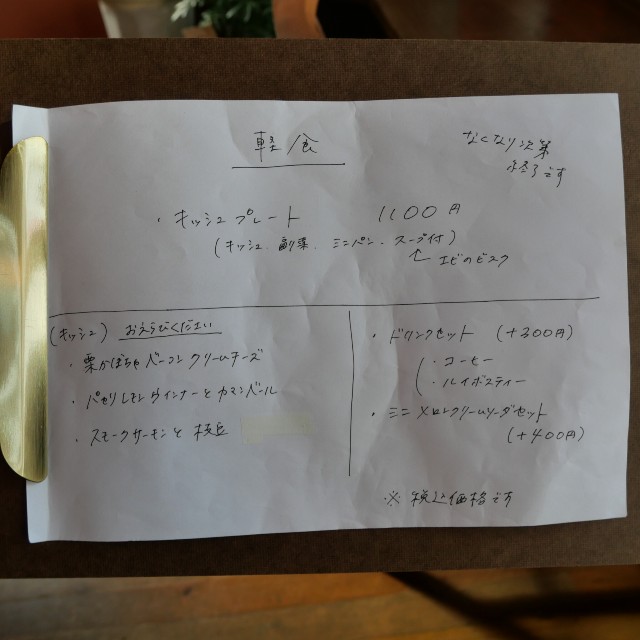 軽食
なくなり次第
終了です
・キッシュプレート 1100円
(キッシュ、副菜、ミニパン、スープ付)
↑ エビのビスク
(キッシュ) おえらびください
・栗かぼちゃベーコンクリームチーズ
・パセリレモンウインナーとカマンベール
・スモークサーモンと枝豆
・ドリンクセット (+300円)
・コーヒー
・ルイボスティー
・ミニメロンクリームソーダセット
(+400円)
※ 税込価格です